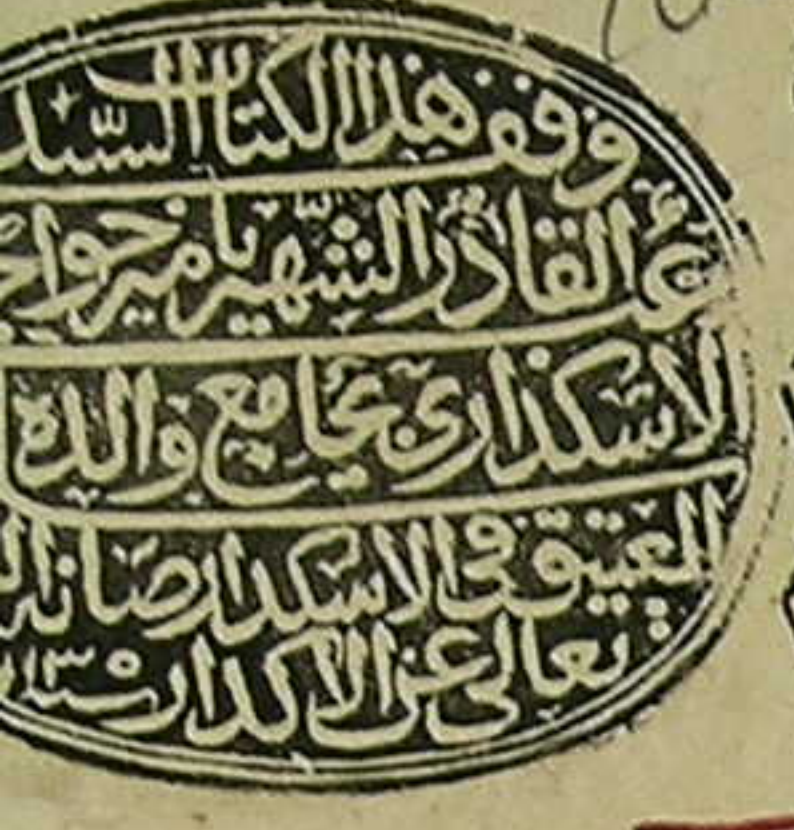 وقف هذا الكتاب السيد
عبد القادر الشهير بامير خواجه
الاسكداري بجامع والده
العتيق في الاسكدار صانها الله
تعالى عن الاكدار سنه